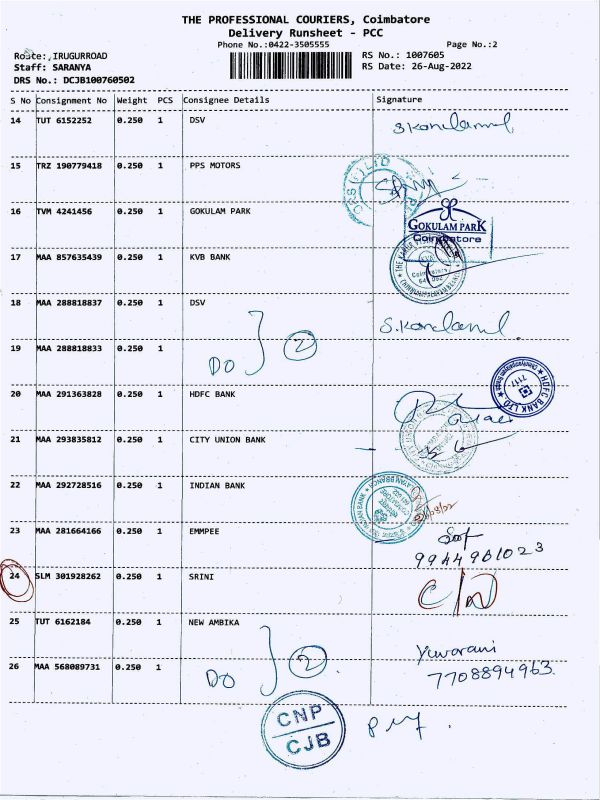 THE PROFESSIONAL COURIERS, Coimbatore
Delivery Runsheet - PCC
Phone No.:0422-3505555 Page No.:2
Route:,IRUGURROAD RS No.: 1007605
Staff: SARANYA RS Date: 26-Aug-2022
DRS No.: DCJB100760502
S No Consignment No Weight PCS Consignee Details Signature
14 TUT 6152252 0.250 1 DSV
15 TRZ 190779418 0.250 1 PPS MOTORS
16 TVM 4241456 0.250 1 GOKULAM PARK
GOKULAM PARK
Coimbatore
17 MAA 857635439 0.250 1 KVB BANK
18 MAA 288818837 0.250 1 DSV
19 MAA 288818833 0.250 1
DO 2
20 MAA 291363828 0.250 1 HDFC BANK
HDFC BANK LTD.
21 MAA 293835812 0.250 1 CITY UNION BANK
22 MAA 292728516 0.250 1 INDIAN BANK
23 MAA 281664166 0.250 1 EMMPEE
9944961023
24 SLM 301928262 0.250 1 SRINI
25 TUT 6162184 0.250 1 NEW AMBIKA
Yuvarani
26 MAA 568089731 0.250 1
7708894963
DO 2
CNP
CJB